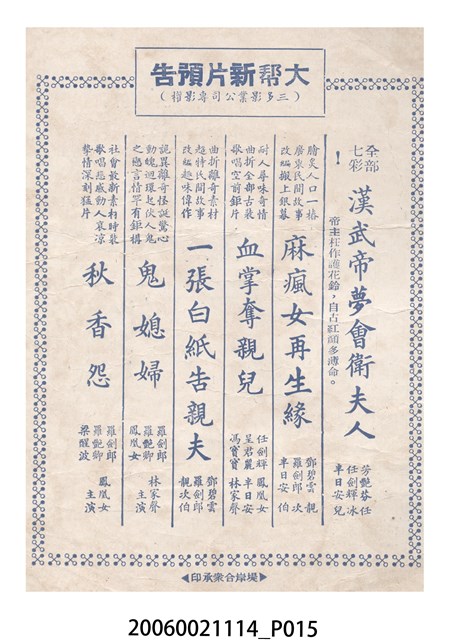 大幇新片預告
（三多影業公司專影權）
全部
七彩
！
漢武帝夢會衛夫人
帝主枉作護花鈴，自古紅顏多薄命。
芳艷芬 任
任劍輝 冰
半日安 兒
膾炙人口一樁
廣東民間故事
改編搬上銀幕
麻瘋女再生緣
鄧碧雲 靚
羅劍郎 次
半日安 伯
耐人尋味奇情
曲折全部古裝
歌唱空前鉅片
血掌奪親兒
任劍輝 鳳凰女
呈君麗 半日安
馮寶寶 林家聲
曲折離奇素材
趣特民間故事
改編趣味偉作
一張白紙告親夫
鄧碧雲
羅劍郎
靚次伯
詭異離奇怪誕驚心
動魄迴環起伏人鬼
之戀言情罕有鉅構
鬼媳婦
羅劍郎 林家聲
羅艷卿
鳳凰女 主演
社會最新素材時裝
歌唱悲感動人哀涼
摯情深刻猛片
秋香怨
羅劍郎 鳳凰女
羅艷卿
梁醒波 主演
◀堤岸合衆承印▶
20060021114_P015